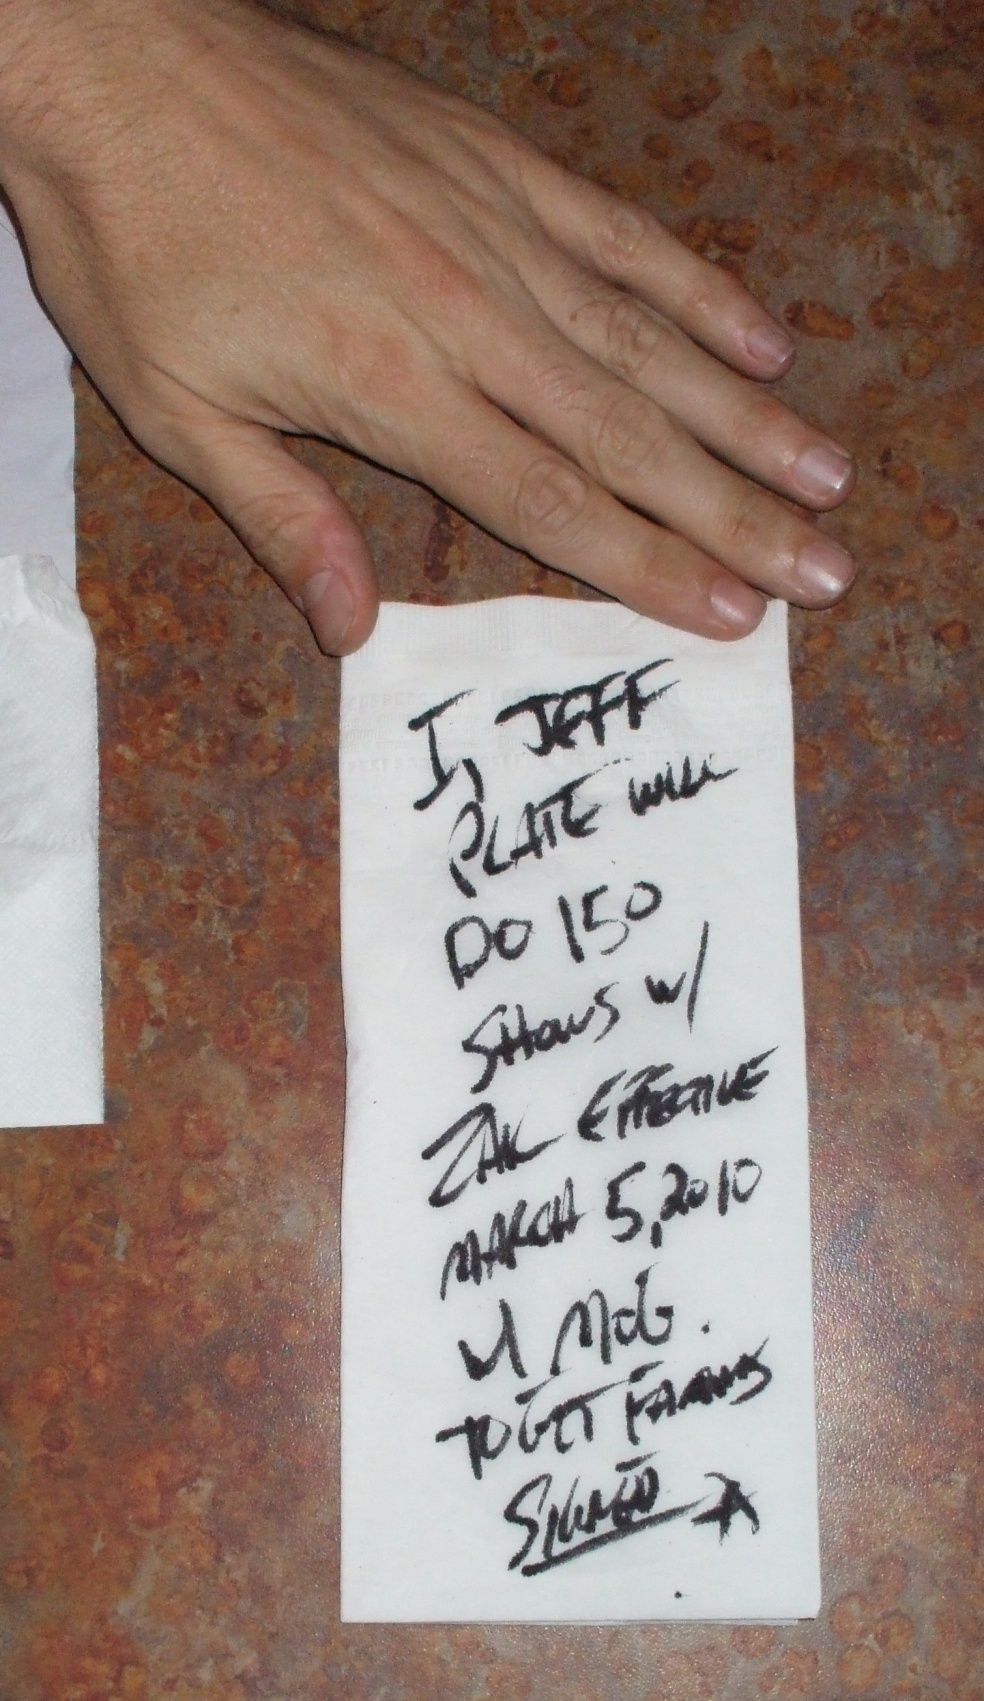 I, JEFF
PLATE WILL
DO 150
SHOWS W/
ZAK EFFECTIVE
MARCH 5, 2010
W/
TO GET
SIGNED